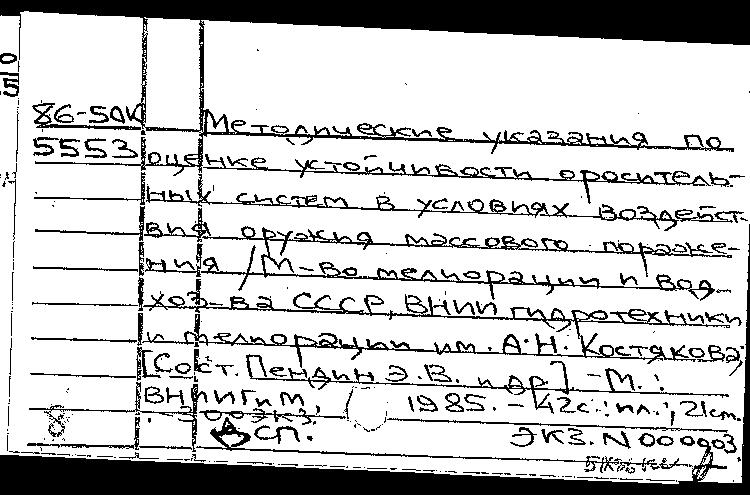 86-5ДК
5553
Методические указания по
оценке устойчивости ороситель-
ных систем в условиях воздейст-
вия оружия массового пораже-
ния /М-во мелиорации и вод.
хоз-ва СССР, ВНИИ гидротехники
и мелиорации им. А.Н. Костякова;
[Сост. Пендин Э.В. и др.] -М.:
ВНИИГиМ, 1985. - 42с.: ил.; 21см.
. 300экз.
8 ДСП. ЭКЗ. N 000003.